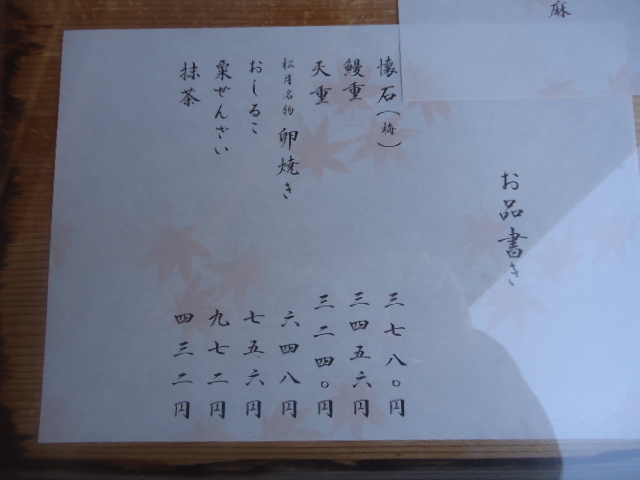 麻
お品書き
懐石(梅) 三七八〇円
鰻重 三四五六円
天重 三二四〇円
松月名物 卵焼き 六四八円
おしるこ 七五六円
粟ぜんざい 九七二円
抹茶 四三二円